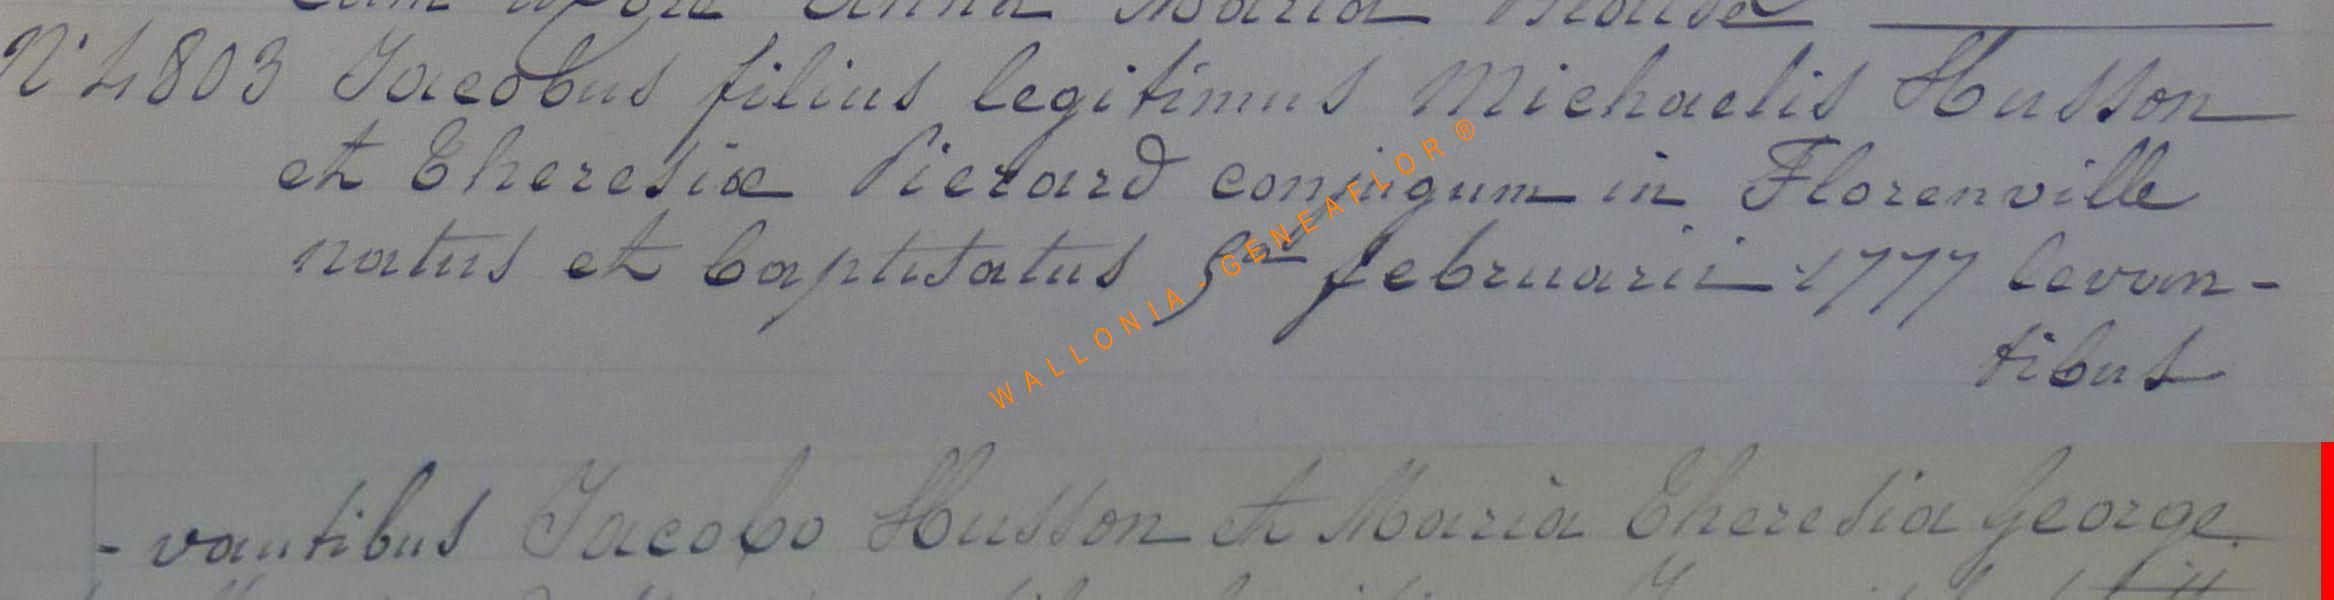 cum uxore Anna Maria
N° 4803 Jacobus filius legitimus Michaelis Husson
et Theresiæ Pierard conjugum in Florenville
natus et baptisatus 5ta februarii 1777 levan-
tibus
WALLONIA - GENEAFLOR ®
- vantibus Jacobo Husson et Maria Theresia George